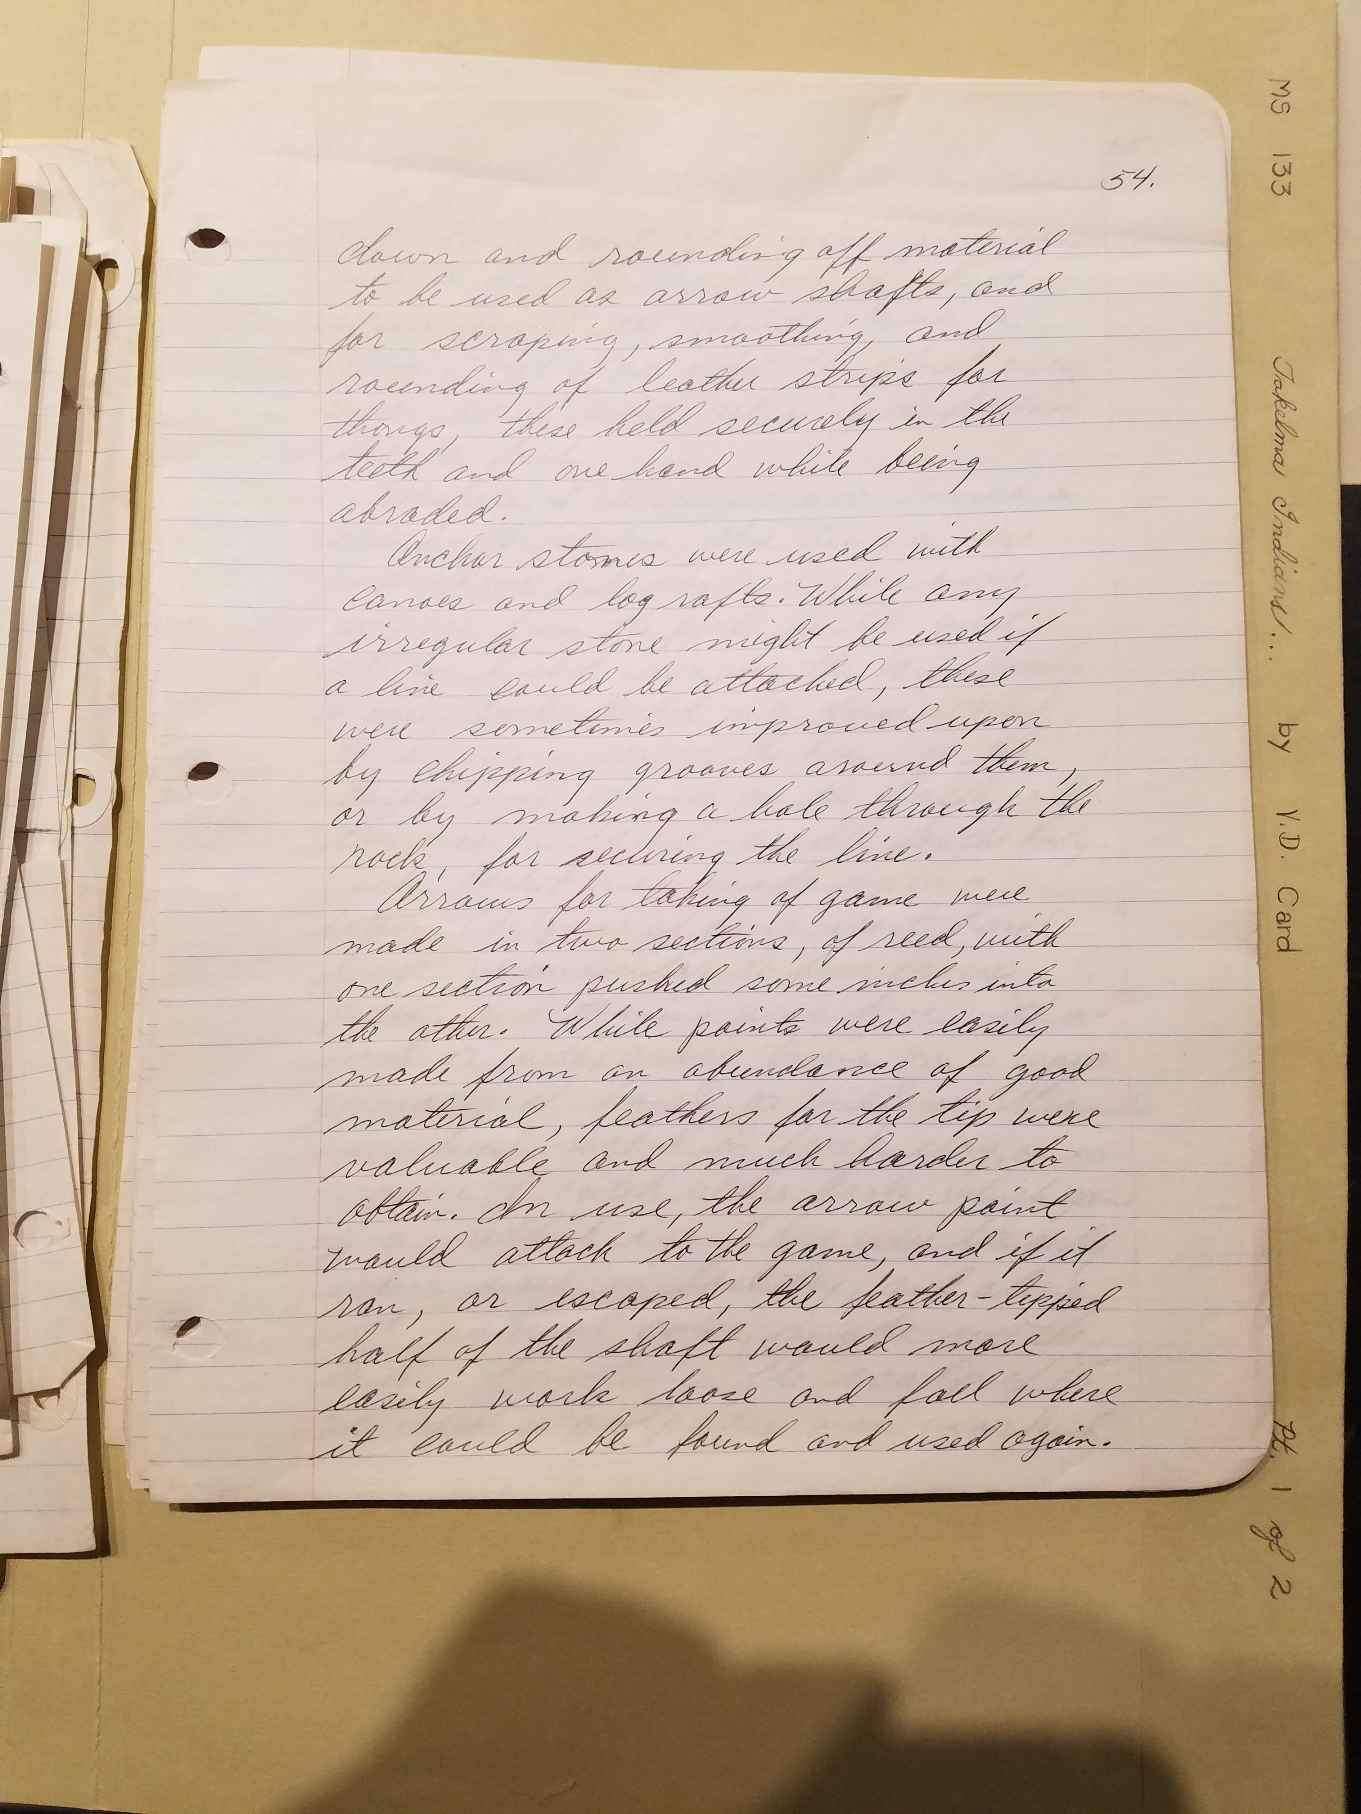 54.
down and rounding off material
to be used as arrow shafts, and
for scraping, smoothing, and
rounding of leather strips for
thongs, these held securely in the
teeth and one hand while being
abraded.
Anchor stones were used with
canoes and log rafts. While any
irregular stone might be used if
a line could be attached, these
were sometimes improved upon
by chipping grooves around them,
or by making a hole through the
rock, for securing the line.
Arrows for taking of game were
made in two sections, of reed, with
one section pushed some inches into
the other. While points were easily
made from an abundance of good
material, feathers for the tip were
valuable and much harder to
obtain. In use, the arrow point
would attach to the game, and if it
ran, or escaped, the feather-tipped
half of the shaft would more
easily work loose and fall where
it could be found and used again.
MS 133 Takelma Indians... by Y.D. Card Pt. 1 of 2